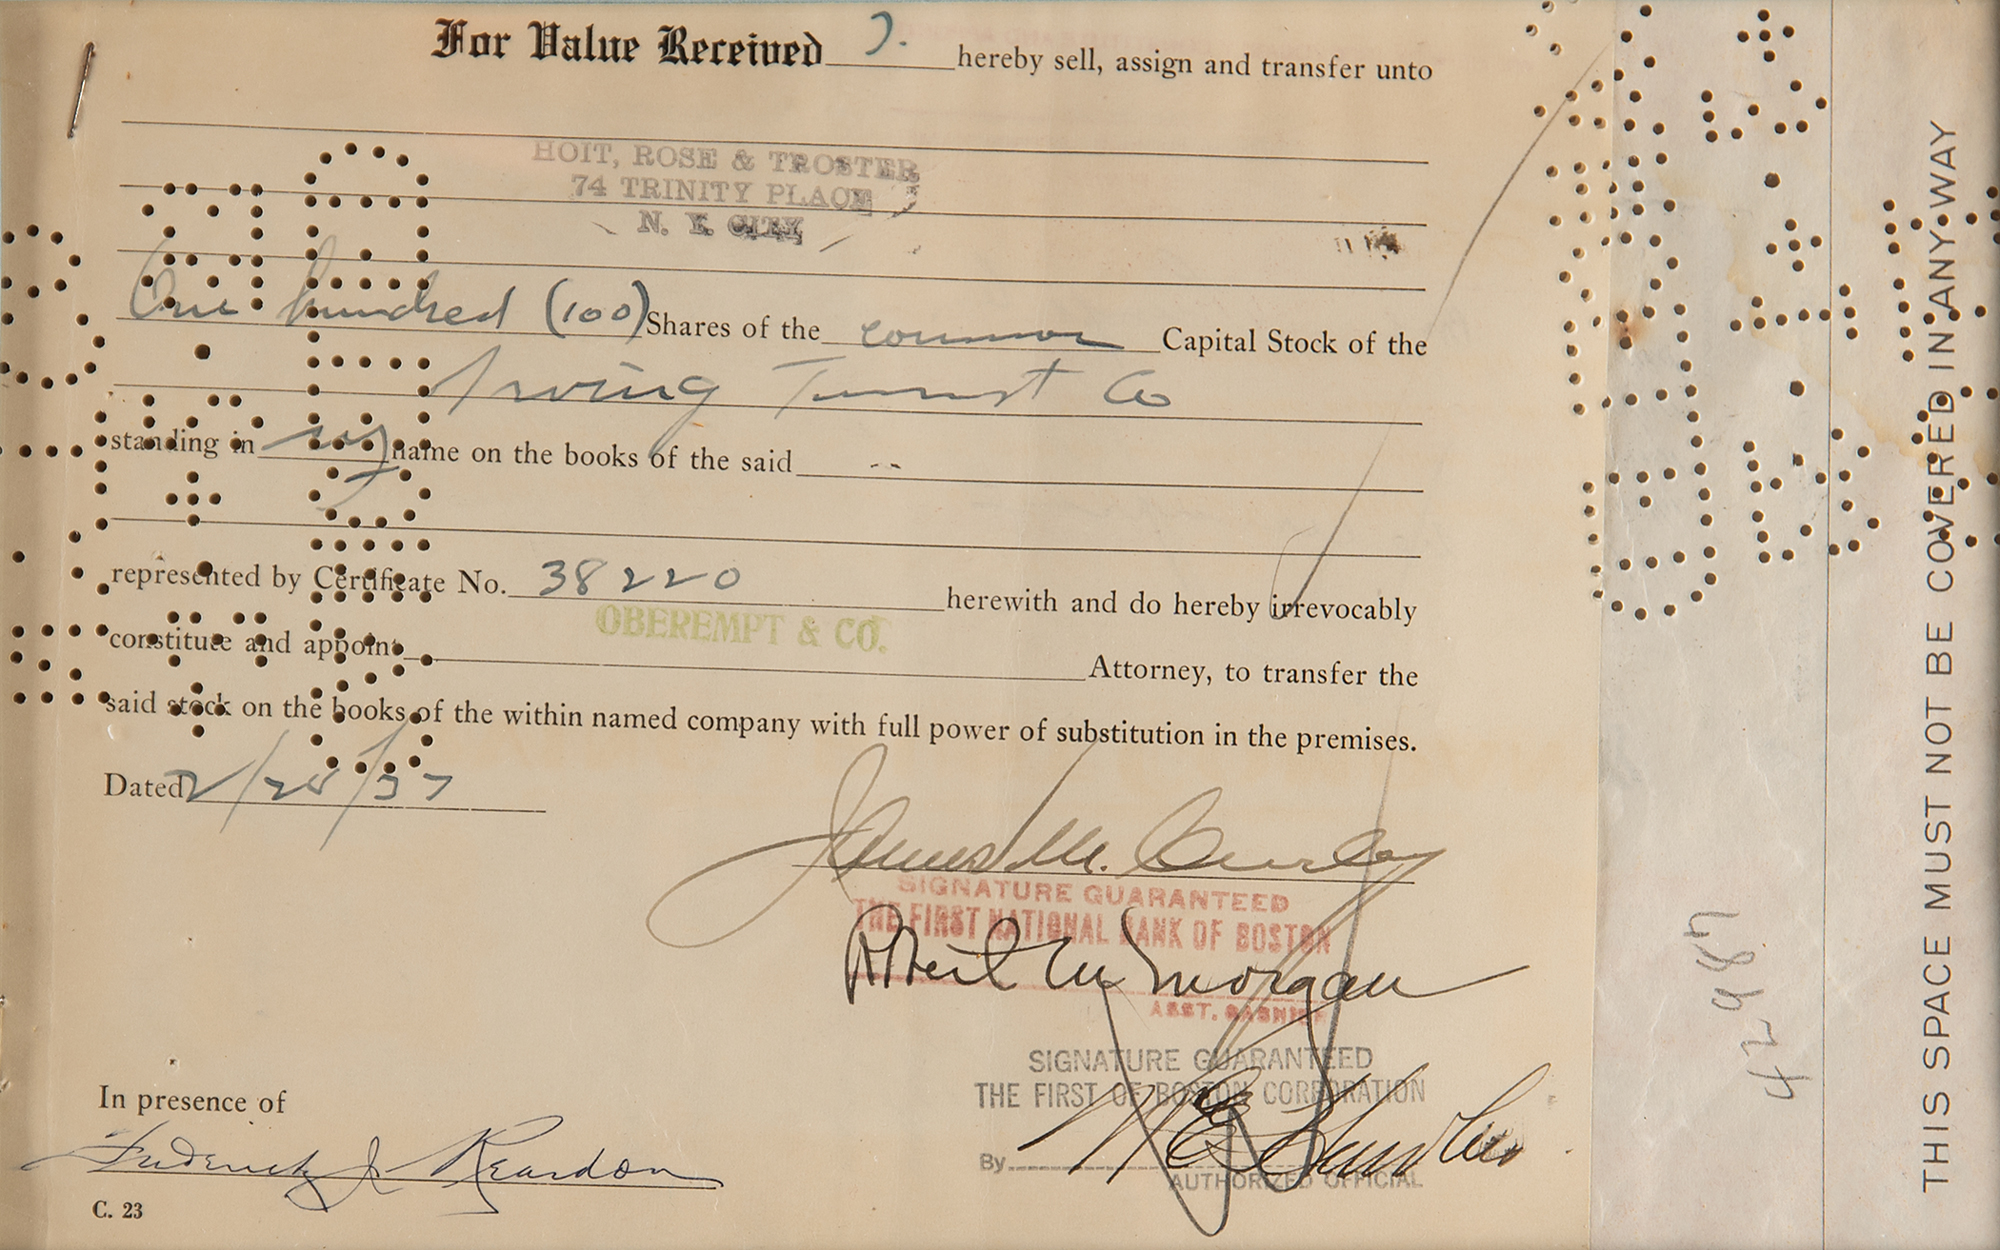 For Value Received I. hereby sell, assign and transfer unto
HOIT, ROSE & TROSTER
74 TRINITY PLACE
N. Y. CITY
One hundred (100) Shares of the common Capital Stock of the
Irving Trust Co
standing in my name on the books of the said --
represented by Certificate No. 38220 herewith and do hereby irrevocably
OBEREMPT & CO.
constitute and appoint Attorney, to transfer the
said stock on the books of the within named company with full power of substitution in the premises.
Dated 2/25/37
James M. Curley
SIGNATURE GUARANTEED
THE FIRST NATIONAL BANK OF BOSTON
Robert W Morgan
ASST. CASHIER
SIGNATURE GUARANTEED
THE FIRST OF BOSTON CORPORATION
By
AUTHORIZED OFFICIAL
In presence of
Frederick J. Reardon
C. 23
THIS SPACE MUST NOT BE COVERED IN ANY WAY